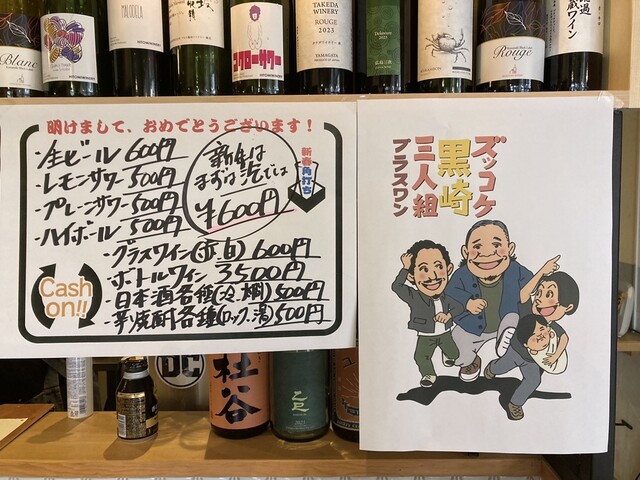 Blanc
MALODELA
コクローサワー
TAKEDA
WINERY
ROUGE
2023
YAMAGATA
Delaware
2023
Rouge
蔵ワイン
明けまして、おめでとうございます！
・生ビール 600円
・レモンサワー 500円
・プレーンサワー 500円
・ハイボール 500円
・グラスワイン(赤、白) 600円
・ボトルワイン 3500円
・日本酒各種(冷、燗) 500円
・芋焼酎各種(ロック、湯) 500円
新年は
まずは泡でしょ
¥600円
新春角打ち
Cash
on!!
ズッコケ
黒崎
三人組
プラスワン
DC
社谷